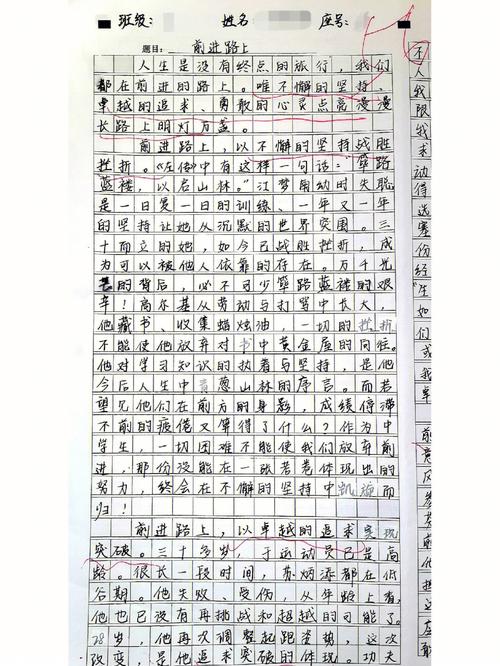 班级: 姓名: 座号:
题目: 前进路上
人生是没有终点的旅行,我们
都在前进的路上。唯不懈的坚持、
卓越的追求、勇敢的心灵点亮漫漫
长路上明灯万盏。
前进路上,以不懈的坚持战胜
挫折。《左传》中有这样一句话:“筚路
蓝褛,以启山林。”江梦南幼时失聪
是一日复一日的训练、一年又一年
的坚持让她从沉默的世界突围。三
十而立的她,如今已战胜挫折,成
为可以被他人依靠的存在。万千光
的背后,必不可少筚路蓝褛的艰
辛!高尔基从劳动与打骂中长大,
他藏书、收集蜡烛油,一切的挫折
不能使他放弃对书中黄金屋的向往。
他对学习知识的执着与坚持,是他
今后人生中青葱山林的序言。而若
望见他们在前方的身影,成绩停滞
不前的疲倦又算得了什么?作为中
学生,一切困难不能使我们放弃前
进,那份没能在一张答卷体现出的
努力,终会在不懈的坚持中凯旋而
归!
前进路上,以卓越的追求实现
突破。三十多岁,于运动员已是高
龄。很长一段时间,苏炳添都在低
谷期。他失败、受伤,从年龄上看,
他也已没有再挑战和超越的可能了。
28岁,他再次调整起跑姿势,这次
改变,是他追求突破的体现。功夫
不
人
我
限
我
求
动
得
选
塞
份
经
“生
如
们
或
我
卓
前
意
风